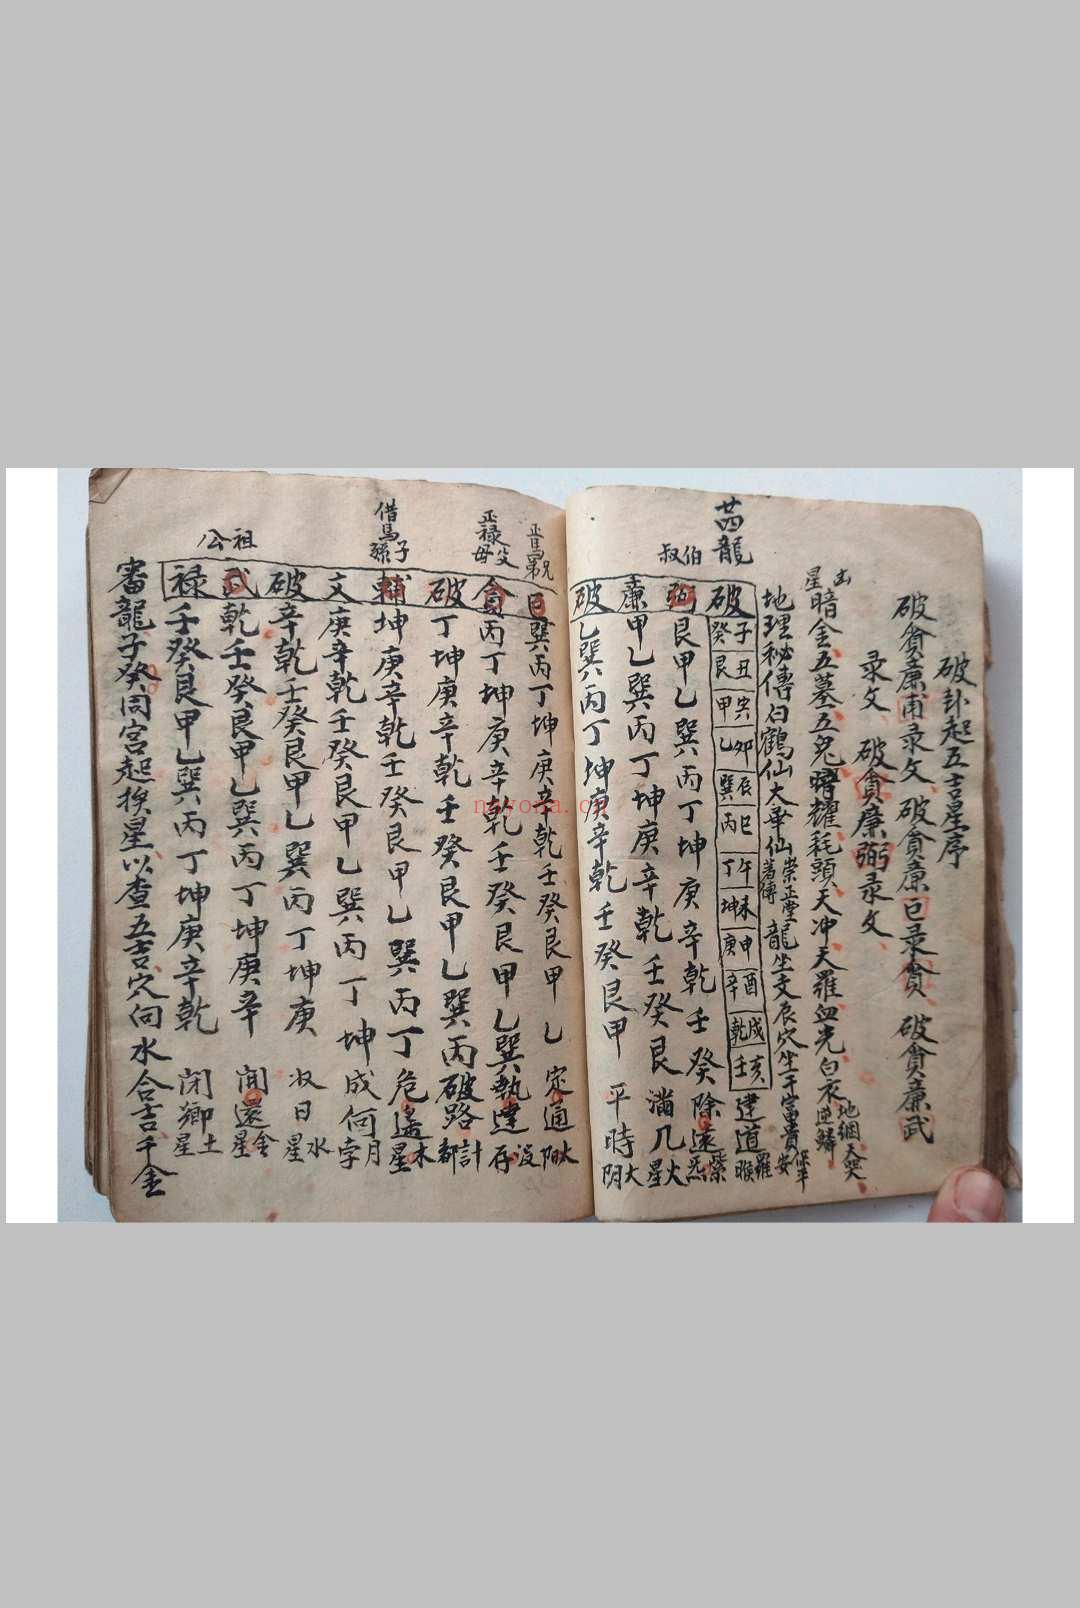 破卦起五吉星序
破貪廉甫录文 破貪廉巨录貪 破貪廉武
录文 破貪廉弼录文
星暗金五墓五鬼曜耗頭天冲天羅血光白衣
地網天哭
地理秘傳白鶴仙大華仙 龍坐支辰穴坐干富貴
崇正堂
保平安
廿四龍
伯叔
破
子癸
丑艮
寅甲
卯乙
辰巽
巳丙
午丁
未坤
申庚
酉辛
戌乾
亥壬
建道
羅㬋
弼艮甲乙巽丙丁坤庚辛乾壬癸除遠
紫炁
廉甲乙巽丙丁坤庚辛乾壬癸艮滿几
火星
破乙巽丙丁坤庚辛乾壬癸艮甲平時
大阴
兄弟
巨巽丙丁坤庚辛乾壬癸艮甲乙定通
太阳
正禄
父母
貪丙丁坤庚辛乾壬癸艮甲乙巽執達
破丁坤庚辛乾壬癸艮甲乙巽丙破路
計都
借馬
子孫
輔坤庚辛乾壬癸艮甲乙巽丙丁危遙
木星
文庚辛乾壬癸艮甲乙巽丙丁坤成何
月孛
破辛乾壬癸艮甲乙巽丙丁坤庚収日
水星
武乾壬癸艮甲乙巽丙丁坤庚辛開還
金星
祖公
禄壬癸艮甲乙巽丙丁坤庚辛乾閉鄉
土星
審龍子癸同宮起挨星以查五吉穴向水合吉千金
nayona.cn